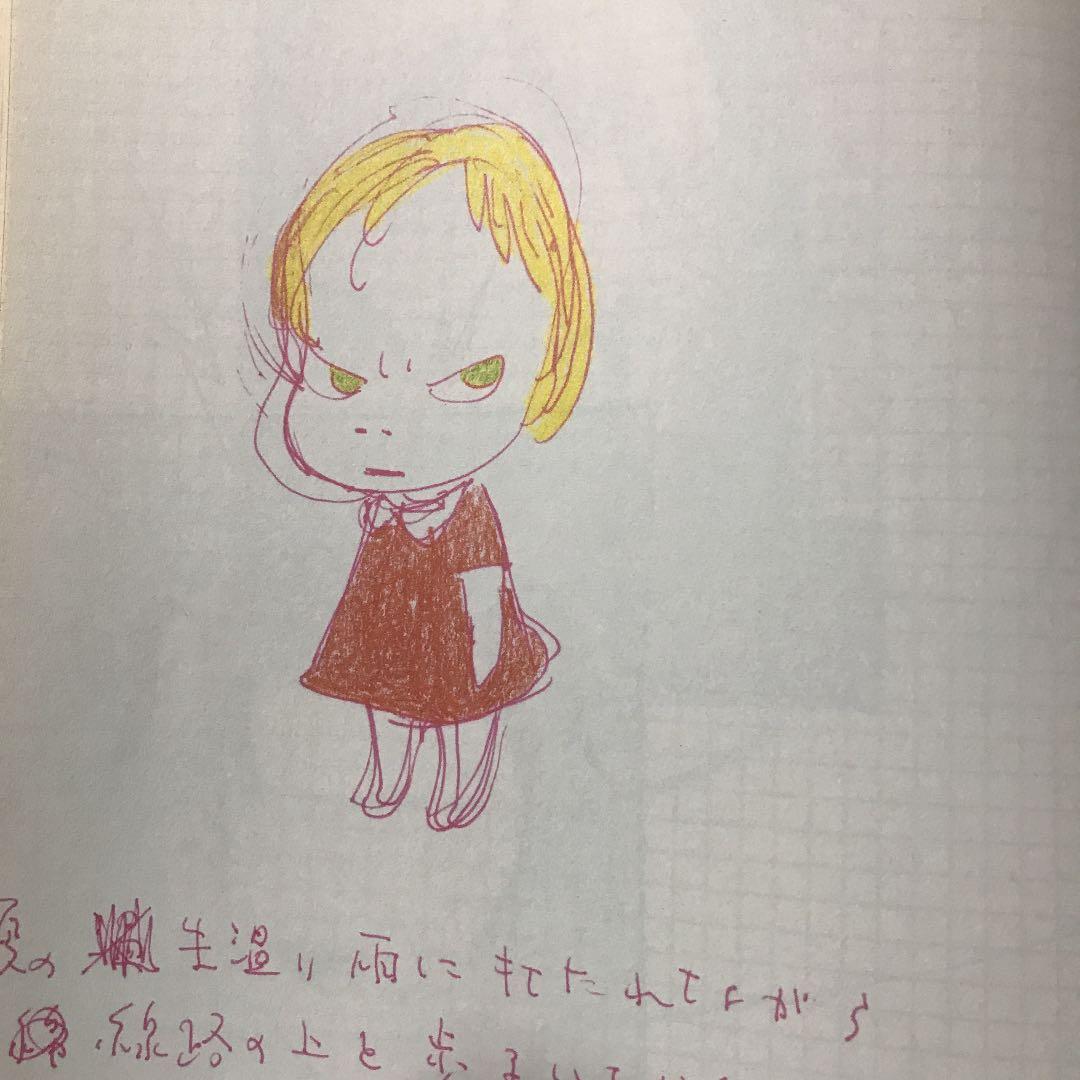 夏の 生温い 雨に 打たれてながら
線路の上を歩